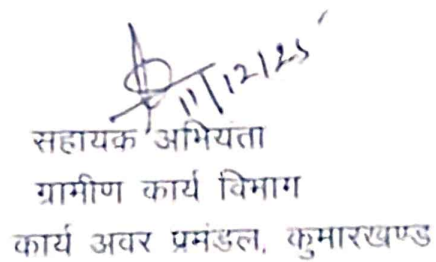 11/12/25
सहायक अभियंता
ग्रामीण कार्य विभाग
कार्य अवर प्रमंडल, कुमारखण्ड